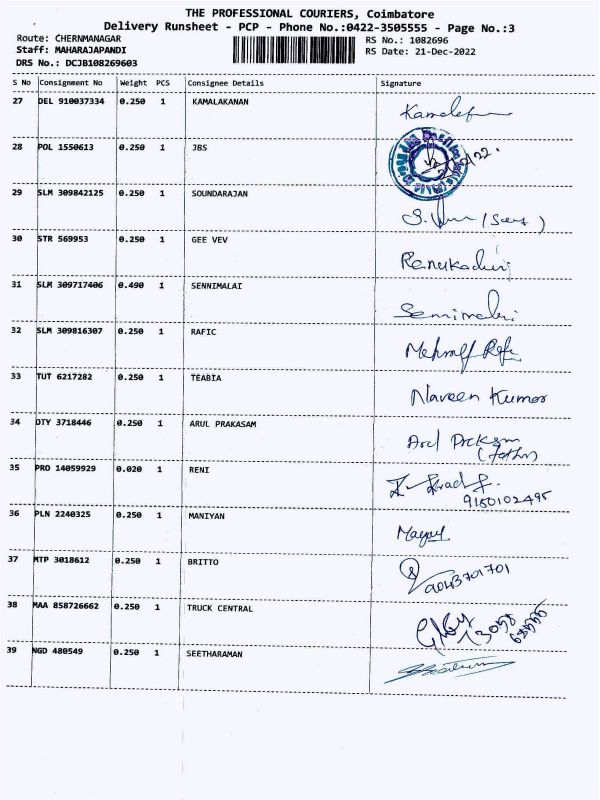 THE PROFESSIONAL COURIERS, Coimbatore
Delivery Runsheet - PCP - Phone No.:0422-3505555 - Page No.:3
Route: CHERNMANAGAR RS No.: 1082696
Staff: MAHARAJAPANDI RS Date: 21-Dec-2022
DRS No.: DCJB108269603
S No Consignment No Weight PCS Consignee Details Signature
27 DEL 910037334 0.250 1 KAMALAKANAN
28 POL 1550613 0.250 1 JBS
29 SLM 309842125 0.250 1 SOUNDARAJAN
30 STR 569953 0.250 1 GEE VEV
Renukadevi
31 SLM 309717406 0.490 1 SENNIMALAI
32 SLM 309816307 0.250 1 RAFIC
33 TUT 6217282 0.250 1 TEABIA
Naveen Kumar
34 OTY 3718446 0.250 1 ARUL PRAKASAM
35 PRO 14059929 0.020 1 RENI
9150102495
36 PLN 2240325 0.250 1 MANIYAN
37 MTP 3018612 0.250 1 BRITTO
9043701701
38 MAA 858726662 0.250 1 TRUCK CENTRAL
39 NGD 480549 0.250 1 SEETHARAMAN